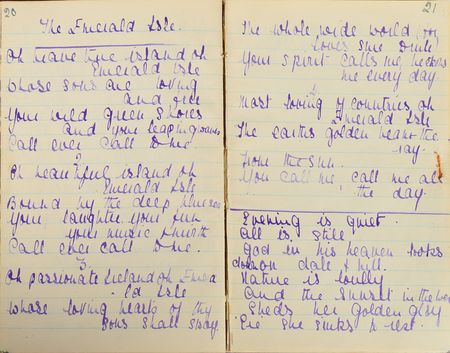 20
The Emerald Isle.
Oh native island oh
Emerald Isle
whose sons are loving
and
Your wild green shores
and your leaping waves
Call ever call to me.
2
Oh beautiful island oh
Emerald Isle
Bound by the deep blue sea
Your laughter your fun
your music
Call ever call to me.
3
Oh passionate Ireland oh Emera
ld Isle
whose loving hearts of thy
sons shall sway
21
The whole wide world
loves
Your spirit calls me beckons
me every day
4
Most loving of countries oh
Emerald Isle
The earths golden the
ray
from the sun.
You call me, call me all
the day
Evening is quiet.
All is still,
God in his heaven looks
down on dale & hill.
Nature is lovely
And the sunset in the west
Sheds her golden glory
Ere she sinks to rest.